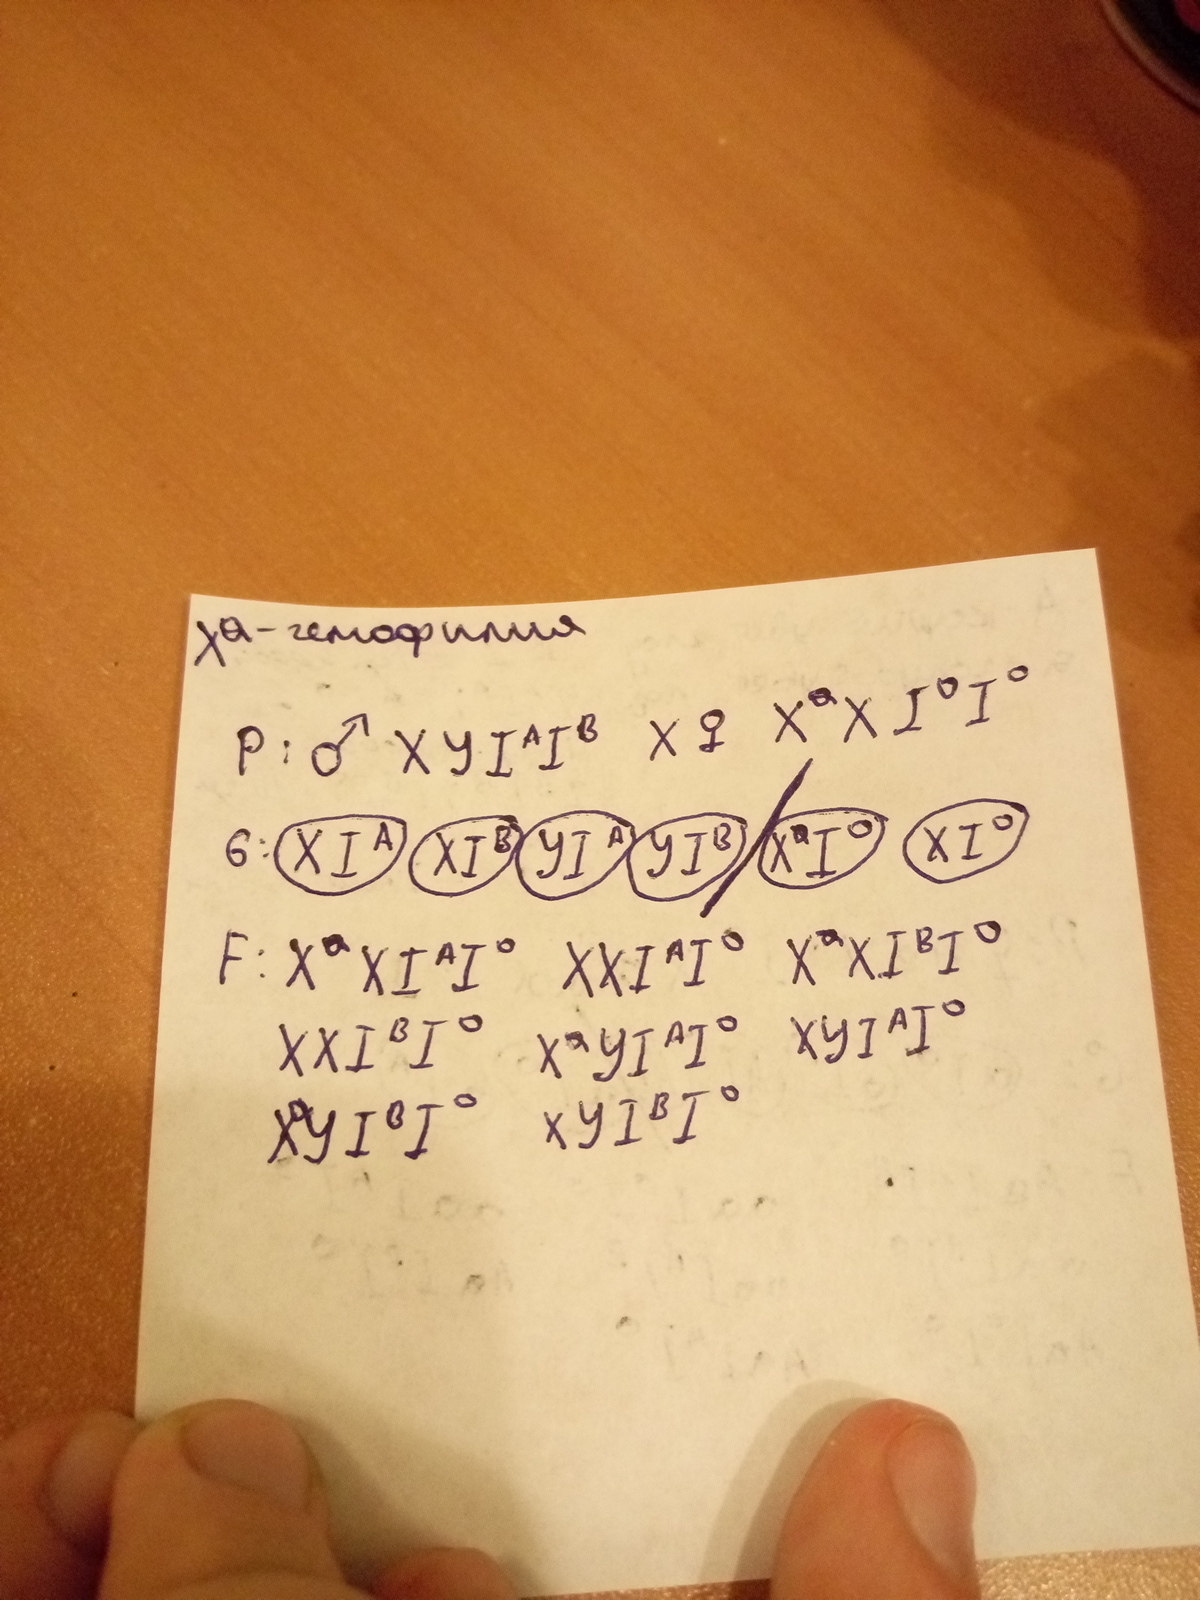 Xᵃ-гемофилия
P: ♂ XYIᴬIᴮ x ♀ XᵃX I⁰I⁰
G: XIᴬ XIᴮ YIᴬ YIᴮ / XᵃI⁰ XI⁰
F: XᵃXIᴬI⁰ XXIᴬI⁰ XᵃXIᴮI⁰
XXIᴮI⁰ XᵃYIᴬI⁰ XYIᴬI⁰
XᵃYIᴮI⁰ XYIᴮI⁰